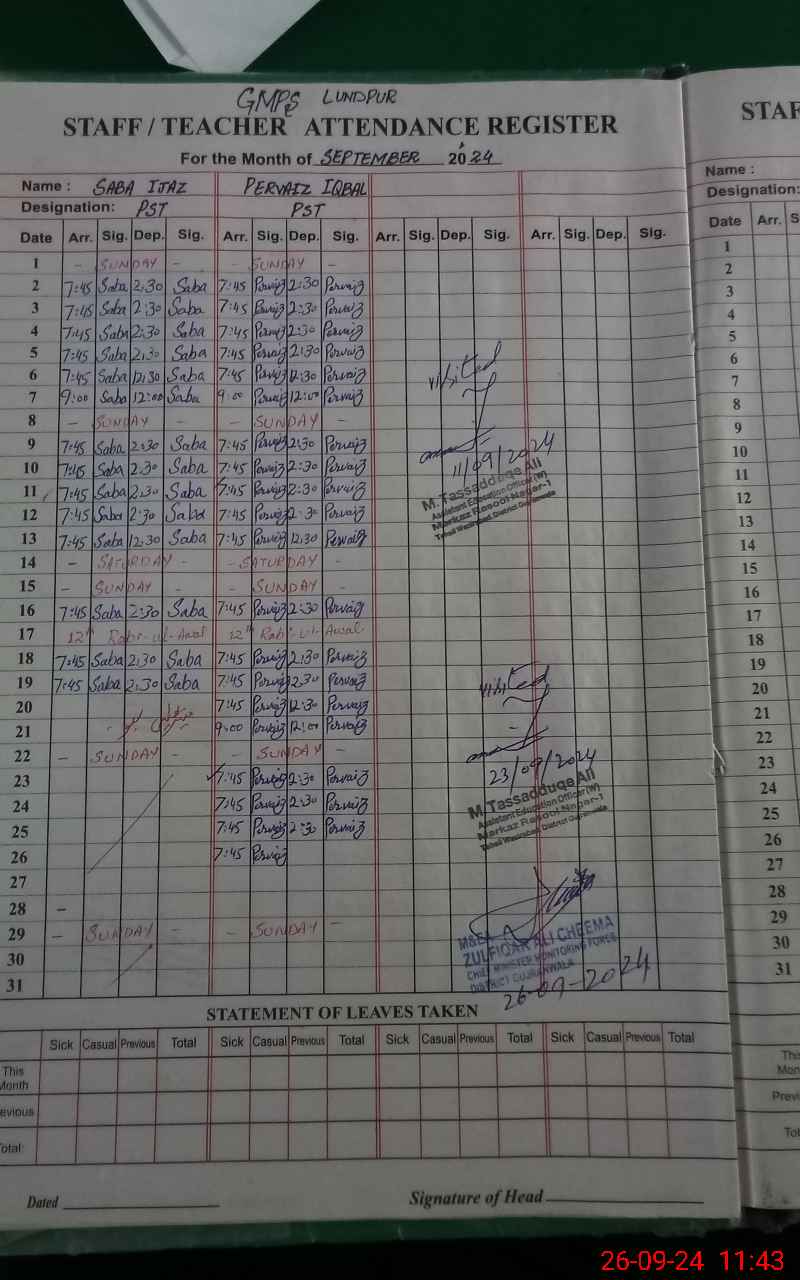 GMPS LUNDPUR
STAFF / TEACHER ATTENDANCE REGISTER
For the Month of SEPTEMBER 2024
Name : SABA IJAZ PERVAIZ IQBAL
Designation: PST PST
Date Arr. Sig. Dep. Sig. Arr. Sig. Dep. Sig. Arr. Sig. Dep. Sig. Arr. Sig. Dep. Sig.
1 - SUNDAY - - SUNDAY -
2 7:45 Saba 2:30 Saba 7:45 Pervaiz 2:30 Pervaiz
3 7:45 Saba 2:30 Saba 7:45 Pervaiz 2:30 Pervaiz
4 7:45 Saba 2:30 Saba 7:45 Pervaiz 2:30 Pervaiz
5 7:45 Saba 2:30 Saba 7:45 Pervaiz 2:30 Pervaiz
6 7:45 Saba 12:30 Saba 7:45 Pervaiz 12:30 Pervaiz
7 9:00 Saba 12:00 Saba 9:00 Pervaiz 12:00 Pervaiz
8 - SUNDAY - - SUNDAY -
9 7:45 Saba 2:30 Saba 7:45 Pervaiz 2:30 Pervaiz
10 7:45 Saba 2:30 Saba 7:45 Pervaiz 2:30 Pervaiz
11 7:45 Saba 2:30 Saba 7:45 Pervaiz 2:30 Pervaiz
12 7:45 Saba 2:30 Saba 7:45 Pervaiz 2:30 Pervaiz
13 7:45 Saba 12:30 Saba 7:45 Pervaiz 12:30 Pervaiz
14 - SATURDAY - - SATURDAY -
15 - SUNDAY - - SUNDAY -
16 7:45 Saba 2:30 Saba 7:45 Pervaiz 2:30 Pervaiz
17 12th Rabi-ul-Awal 12th Rabi-ul-Awal
18 7:45 Saba 2:30 Saba 7:45 Pervaiz 2:30 Pervaiz
19 7:45 Saba 2:30 Saba 7:45 Pervaiz 2:30 Pervaiz
20 7:45 Pervaiz 12:30 Pervaiz
21 9:00 Pervaiz 12:00 Pervaiz
22 - SUNDAY - - SUNDAY -
23 7:45 Pervaiz 2:30 Pervaiz
24 7:45 Pervaiz 2:30 Pervaiz
25 7:45 Pervaiz 2:30 Pervaiz
26 7:45 Pervaiz
27
28 -
29 - SUNDAY - - SUNDAY -
30
31
visited
11/09/2024
M. Tassadduqe Ali
Assistant Education Officer (W)
Markaz Rasool Nagar-1
Tehsil Wazirabad, District Gujranwala
visited
23/09/2024
M. Tassadduqe Ali
Assistant Education Officer (W)
Markaz Rasool Nagar-1
Tehsil Wazirabad, District Gujranwala
M&EA
ZULFIQAR ALI CHEEMA
CHIEF MINISTER MONITORING FORCE
DISTRICT GUJRANWALA
26-09-2024
STATEMENT OF LEAVES TAKEN
Sick Casual Previous Total Sick Casual Previous Total Sick Casual Previous Total Sick Casual Previous Total
This
Month
evious
otal:
Dated
Signature of Head
STAF
Name :
Designation:
Date Arr. S
1
2
3
4
5
6
7
8
9
10
11
12
13
14
15
16
17
18
19
20
21
22
23
24
25
26
27
28
29
30
31
This
Mon
Previ
Tot
26-09-24 11:43